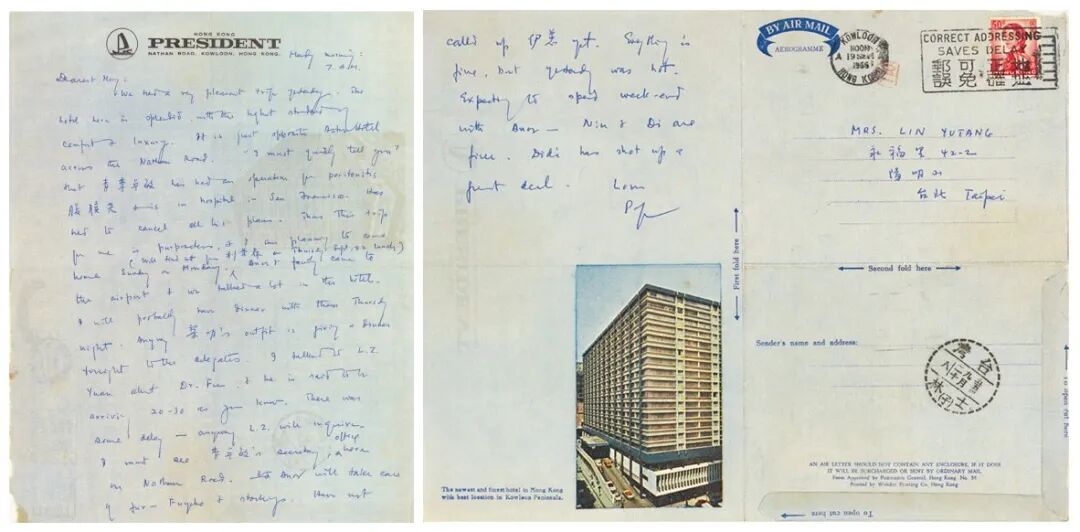 HONG KONG
PRESIDENT
NATHAN ROAD, KOWLOON, HONG KONG.
Monday morning:
7 A.M.
Dearest Hong:
We had a very pleasant trip yesterday. The
hotel here is splendid, with the highest standard of
comfort & luxury. It is just opposite Astor Hotel
across the Nathan Road. I must quickly tell you
that 李卓敏 has had an operation for peritonitis
腹膜炎 & is in hospital in San Francisco. Has
had to cancel all his plans. Thus this trip
for me is purposeless, & I am planning to come
home Sunday or Monday. Anor & family came to
the airport & we talked a lot in the hotel.
I will probably have dinner with them Thursday
night. Anyway 's outfit is giving a dinner
tonight to the delegates. I talked to L.Z.
Yuan about Dr. & he is said to be
arriving 20-30 as you know. There was
some delay — anyway L.Z. will inquire.
I must see 李卓敏's secretary, whose office
on Nathan Road. Anor will take care
of fur - & stockings. Have not
called up yet. Everything is
fine, but yesterday was hot.
Expecting to spend week-end
with Anor — Niu & Di are
fine. Didi has shot up a
great deal. Love
BY AIR MAIL
AEROGRAMME
KOWLOON
NOON
1966
HONG KONG
50
CORRECT ADDRESSING
SAVES DELAY
MRS. LIN YUTANG
永福里 42-2
陽明山
台北 Taipei
First fold here
Second fold here
Sender's name and address:
台灣
士林
To open cut here
AN AIR LETTER SHOULD NOT CONTAIN ANY ENCLOSURE, IF IT DOES
IT WILL BE SURCHARGED OR SENT BY ORDINARY MAIL.
Form Approved by Postmaster General, Hong Kong No. 54
Printed by Printing Co. Hong Kong
To open cut here
The newest and finest hotel in Hong Kong
with best location in Kowloon Peninsula.